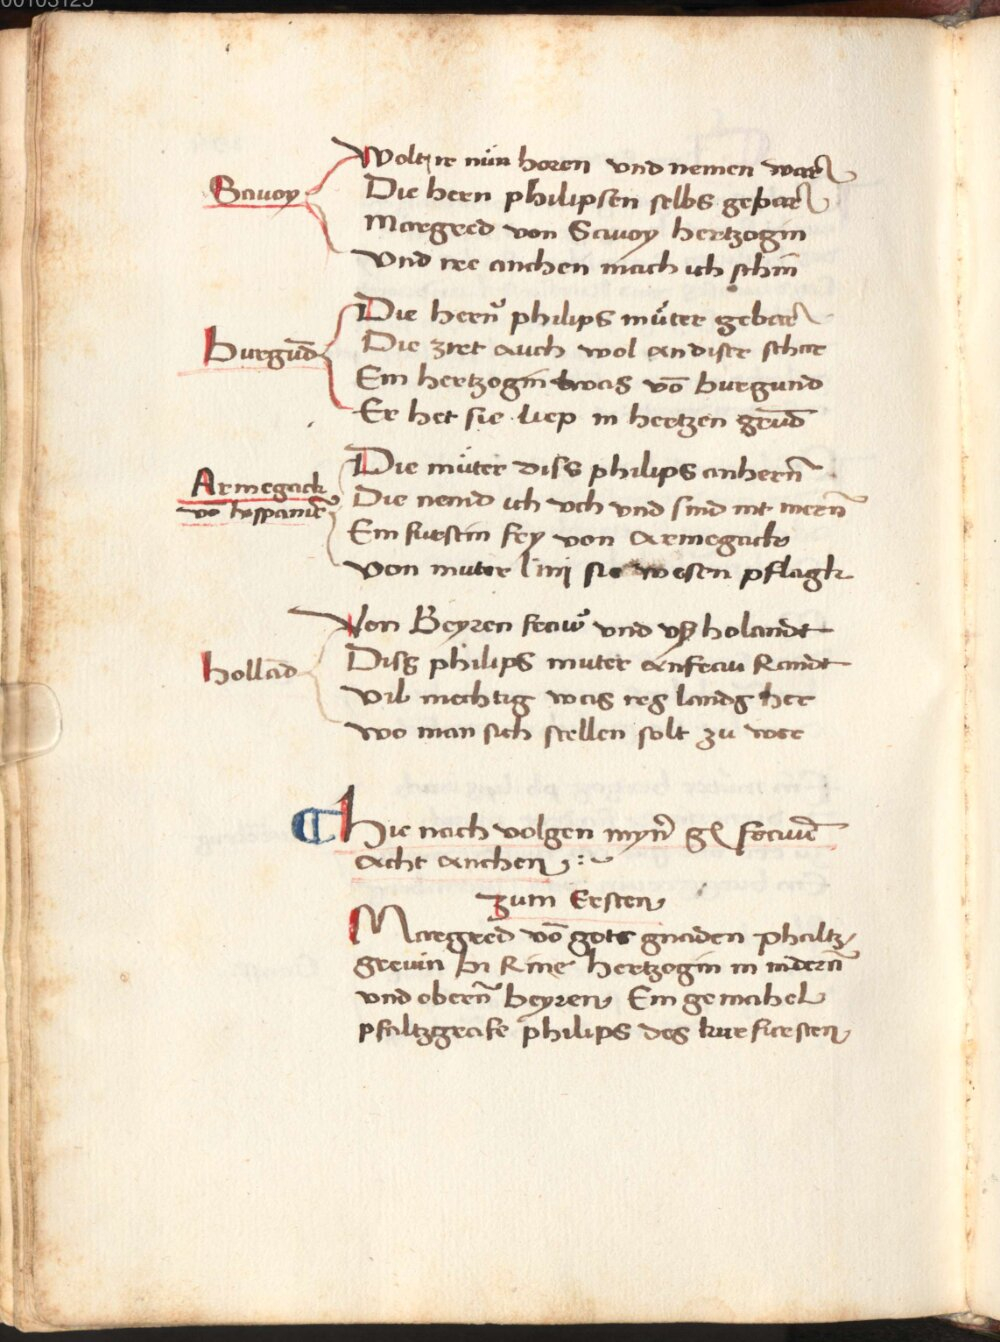 Savoy
Wolt ir nün horen vnd nemen war
Die hern philipsen selbs gepar
Margred von Savoy hertzogin
Vnd ire anchen mach ich schin
burgūd
Die hern philips müter gebar
Die ziret auch wol an diser schar
Ein hertzogin was vō burgund
Er het sie liep in hertzen grūd
Armegack
vō hyspaniē
Die müter diss philips anhern
Die nennd ich vch vnd sind nit mern
Ein furstin frÿ von Armegack
Von muter linÿ sie wesen pflagk
hollād
Von Beyren fraw vnd vß holandt
Diß philips muter anfrau kandt
Vil mechtig was irs lands her
wo man sich stellen solt zu wer
hie nach volgen myn g frauwē
acht anchen :~
zum Ersten
Margred vō gots gnaden phaltz
grevin bi Rine hertzogin in nidern
vnd obern beyren Ein gemahel
pfaltzgrafe philips des kurfursten